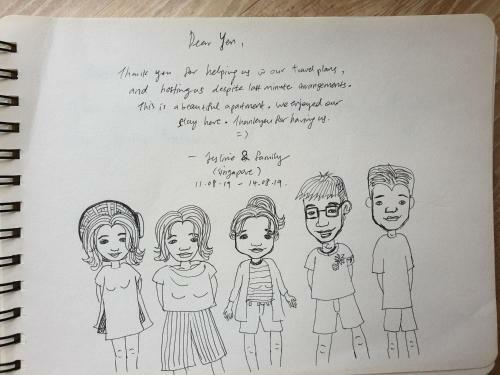 Dear Yen,
Thank you for helping us in our travel plans,
and hosting us despite last minute arrangements.
This is a beautiful apartment. We enjoyed our
stay here. Thank you for having us.
=)
- Jesline & family
(Singapore)
11.08.19 - 14.08.19.